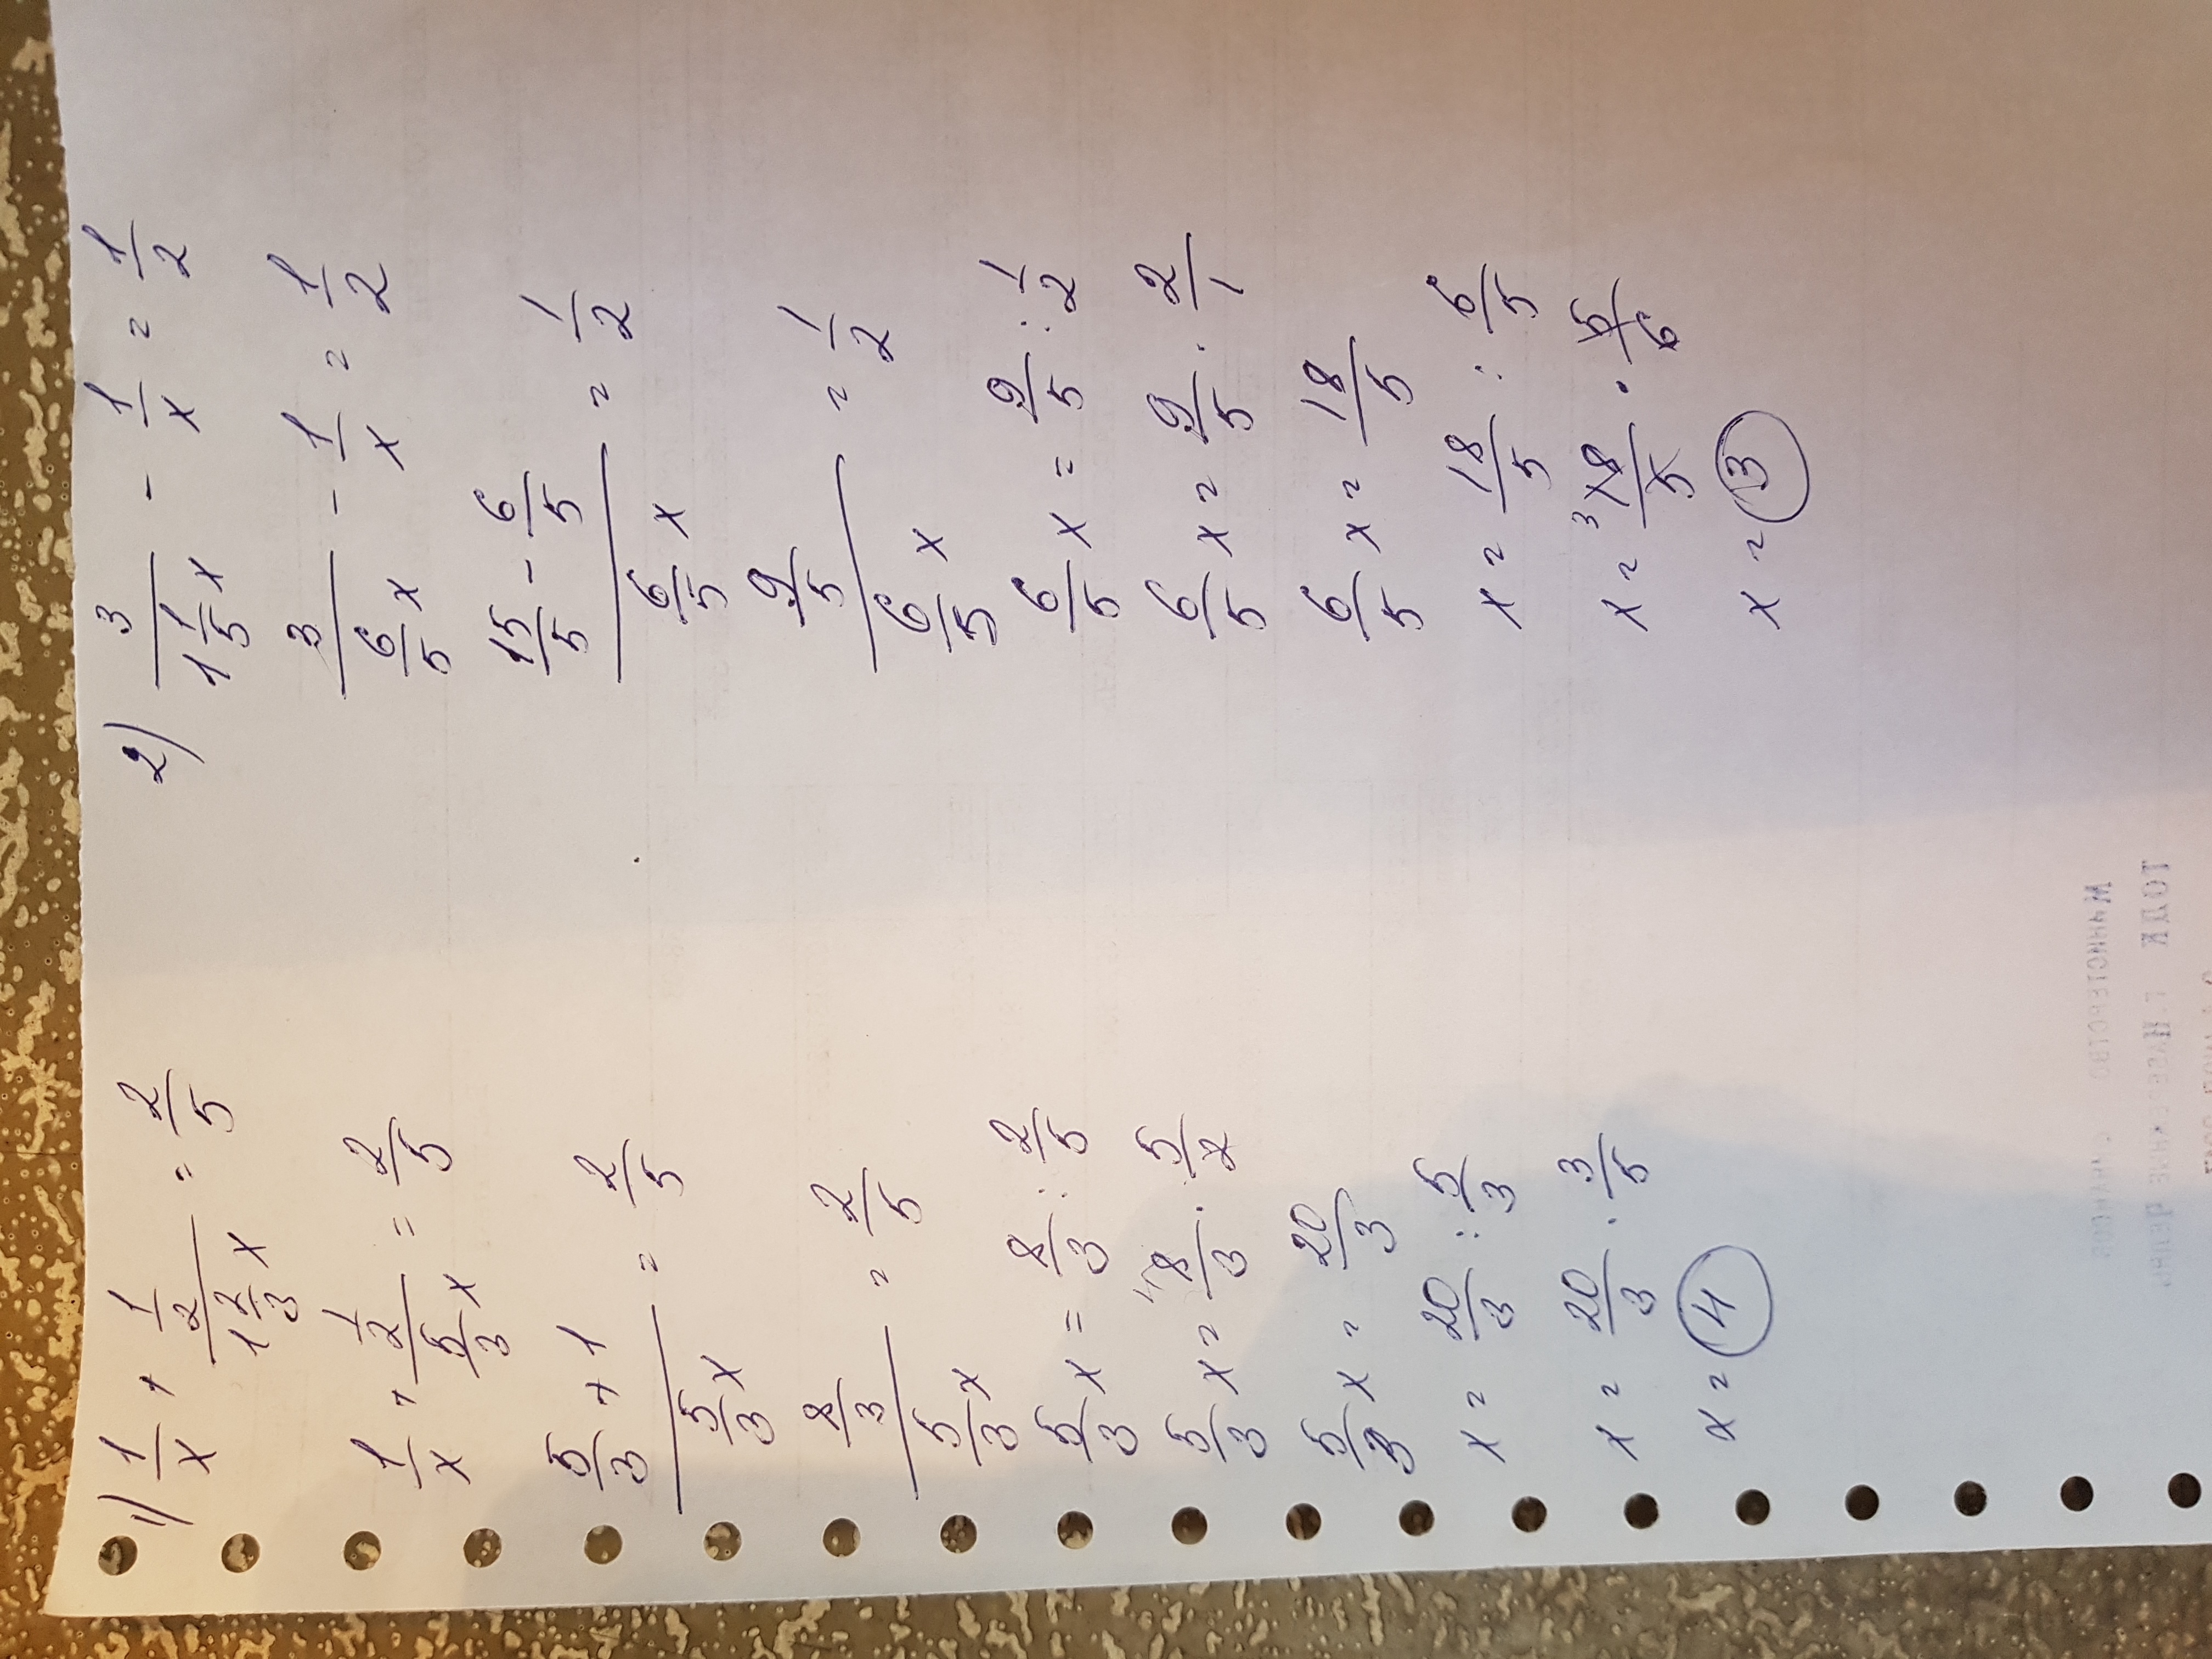 1) 1/x + (1/2)/(1 2/3 x) = 2/5
1/x + (1/2)/(5/3 x) = 2/5
(5/3 + 1)/(5/3 x) = 2/5
(8/3)/(5/3 x) = 2/5
5/3 x = 8/3 : 2/5
5/3 x = 8/3 · 5/2
5/3 x = 20/3
x = 20/3 : 5/3
x = 20/3 · 3/5
x = 4
2) 3/(1 1/5 x) - 1/x = 1/2
3/(6/5 x) - 1/x = 1/2
(15/5 - 6/5)/(6/5 x) = 1/2
(9/5)/(6/5 x) = 1/2
6/5 x = 9/5 : 1/2
6/5 x = 9/5 · 2/1
6/5 x = 18/5
x = 18/5 : 6/5
x = 3 18/5 · 5/6
x = 3